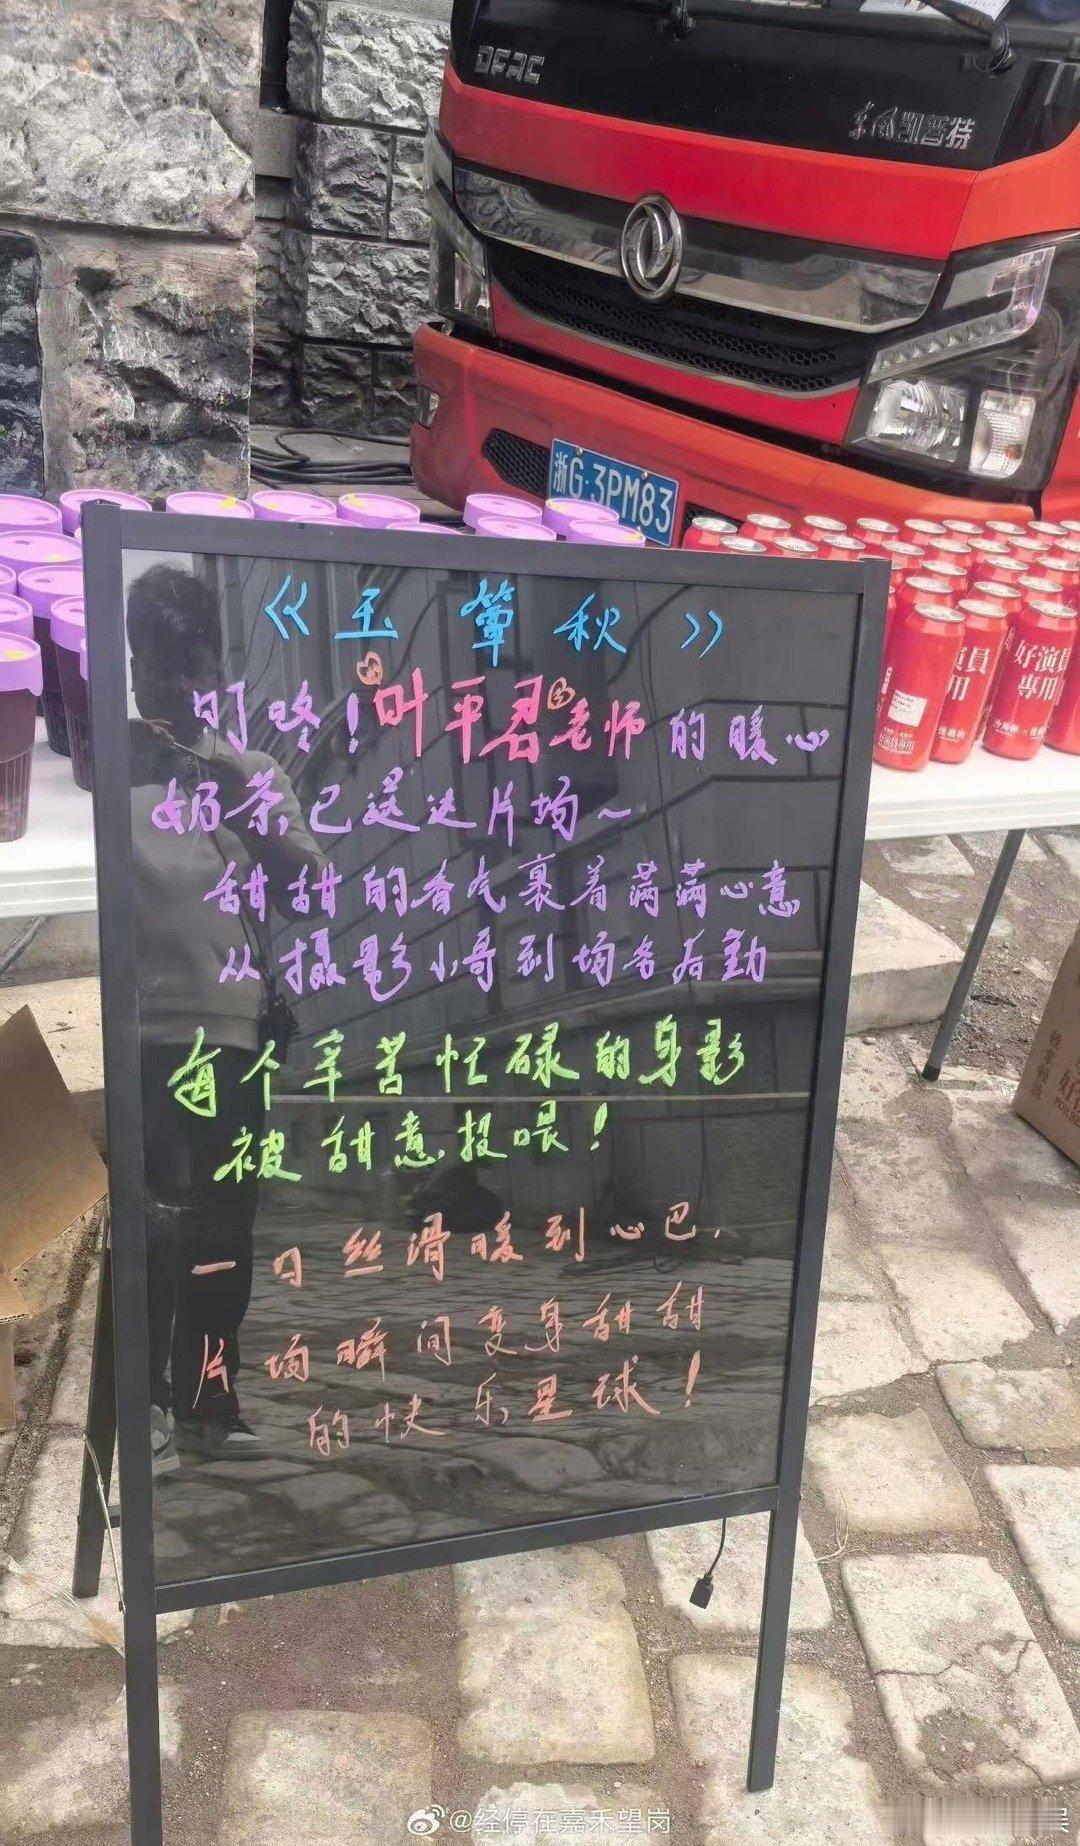 DFAC
东风凯普特
浙G·3PM83
《玉簟秋》
叮咚!叶平君老师的暖心
奶茶,已送达片场~
甜甜的香气裹着满满心意
从摄影小哥到场务后勤
每个辛苦忙碌的身影
被甜意投喂!
一口丝滑暖到心巴.
片场瞬间变身甜甜
的快乐星球!
好演員
專用
演員
用
@经停在嘉禾望岗